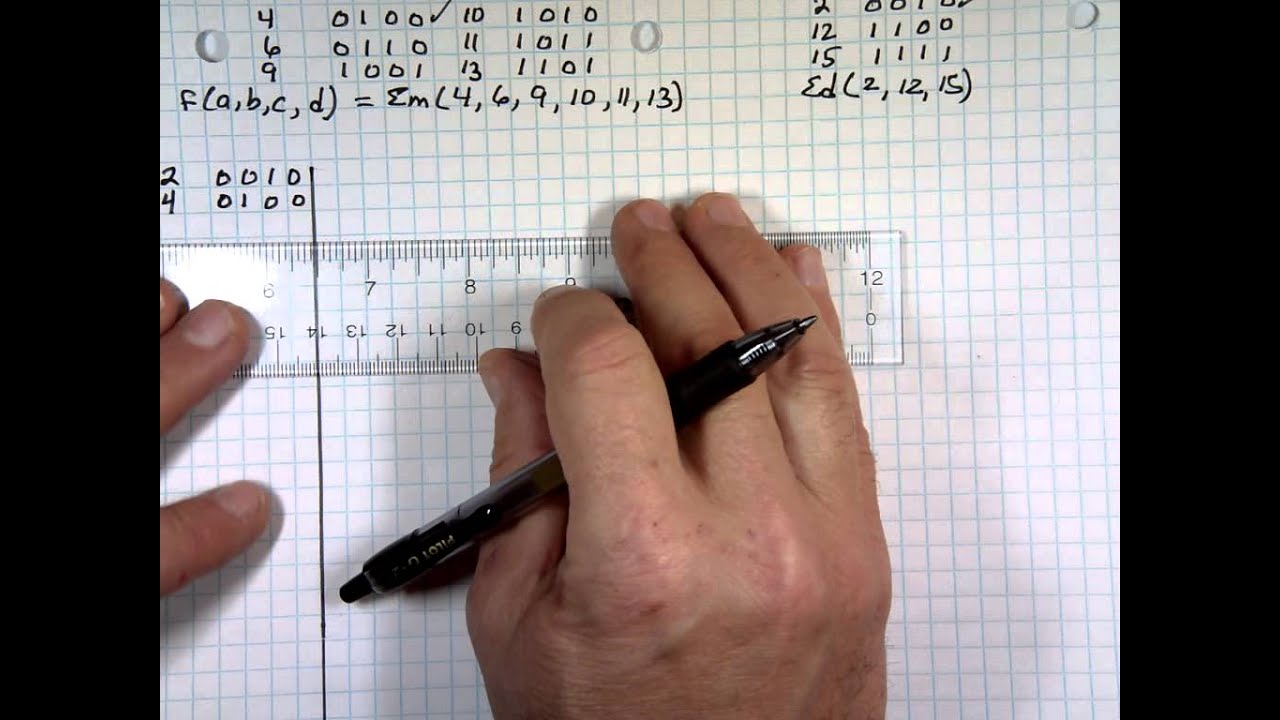 4 0100✓ 10 1010
2 0010✓
6 0110 11 1011
12 1100
9 1001 13 1101
15 1111
F(a,b,c,d) = Σm(4,6,9,10,11,13)
Σd(2,12,15)
2 0010
4 0100
6 7 8 9 12
15 14 13 12 11 10 9 0
PILOT G-2